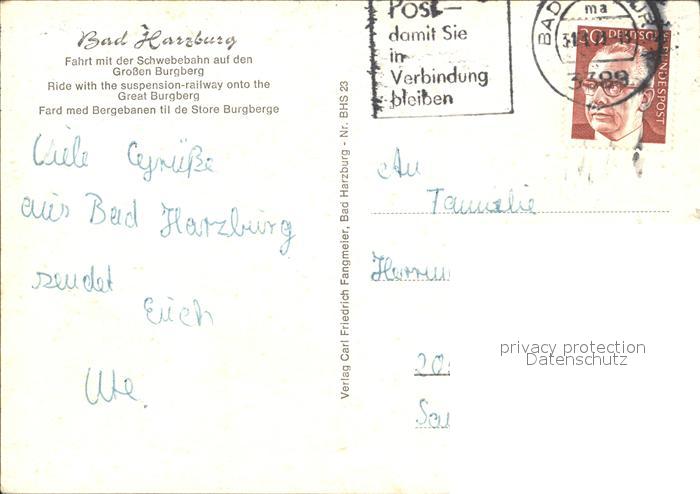 Bad Harzburg
Fahrt mit der Schwebebahn auf den
Großen Burgberg
Ride with the suspension-railway onto the
Great Burgberg
Fard med Bergebanen til de Store Burgberge
Viele Grüße
aus Bad Harzburg
sendet
Euch
Ute.
Verlag Carl Friedrich Fangmeier, Bad Harzburg - Nr. BHS 23
Post—
damit Sie
in
Verbindung
bleiben
BAD
ma
3389
DEUTSCHE BUNDESPOST
An
Familie
20
privacy protection
Datenschutz